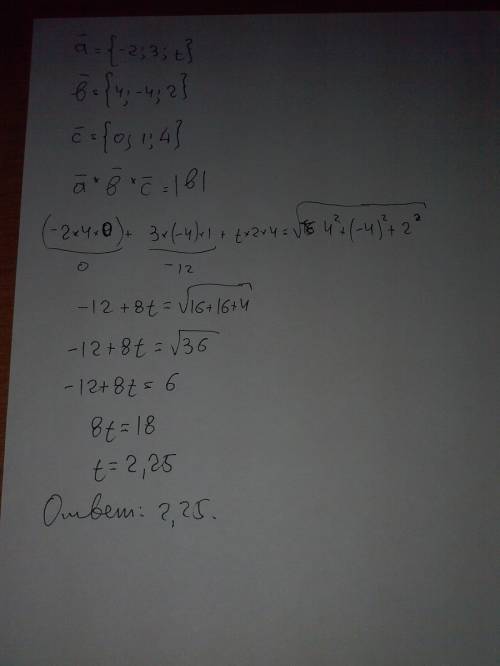 a̅ = {-2; 3; t}
b̅ = {4; -4; 2}
c̅ = {0; 1; 4}
a̅ × b̅ × c̅ = |b|
(-2×4×0) + 3×(-4)×1 + t×2×4 = √4²+(-4)²+2²
0 -12
-12 + 8t = √16+16+4
-12+8t = √36
-12+8t = 6
8t = 18
t = 2,25
Ответ: 2,25.